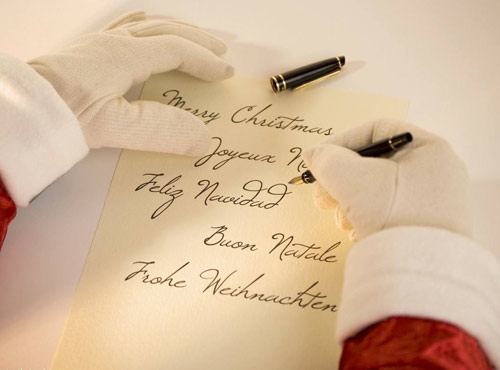 Merry Christmas
Joyeux
Feliz Navidad
Buon Natale
Frohe Weihnachten